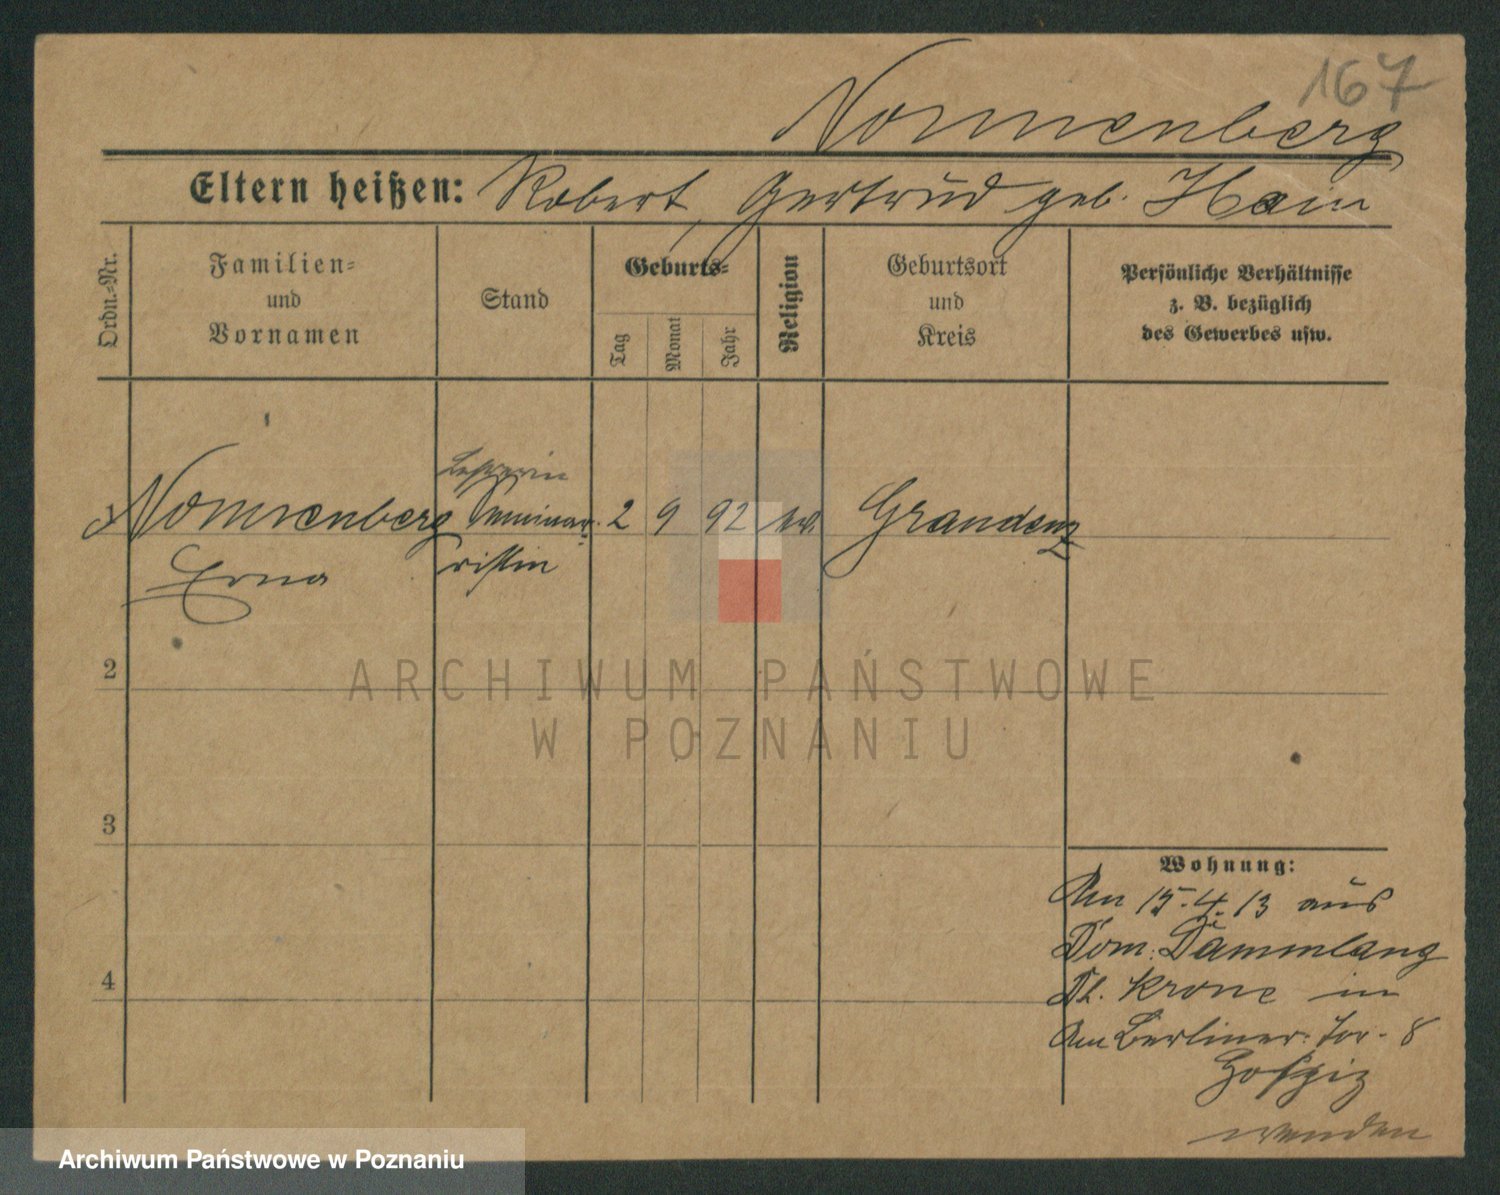 167
Nonnenberg
Eltern heißen: Robert, Gertrud geb. Hain
Ordn.-Nr.
Familien-
und
Vornamen
Stand
Geburts-
Tag
Monat
Jahr
Religion
Geburtsort
und
Kreis
Persönliche Verhältnisse
z. B. bezüglich
des Gewerbes usw.
Lehrerin
1 Nonnenberg Seminar. 2 9 92 ev. Graudenz
Erna ristin
2
3
4
Wohnung:
Am 15.4.13 aus
Dom. Dammlang
Dt. Krone in
Am Berliner Tor 8
Hospiz
wenden
ARCHIWUM PAŃSTWOWE
W POZNANIU
Archiwum Państwowe w Poznaniu